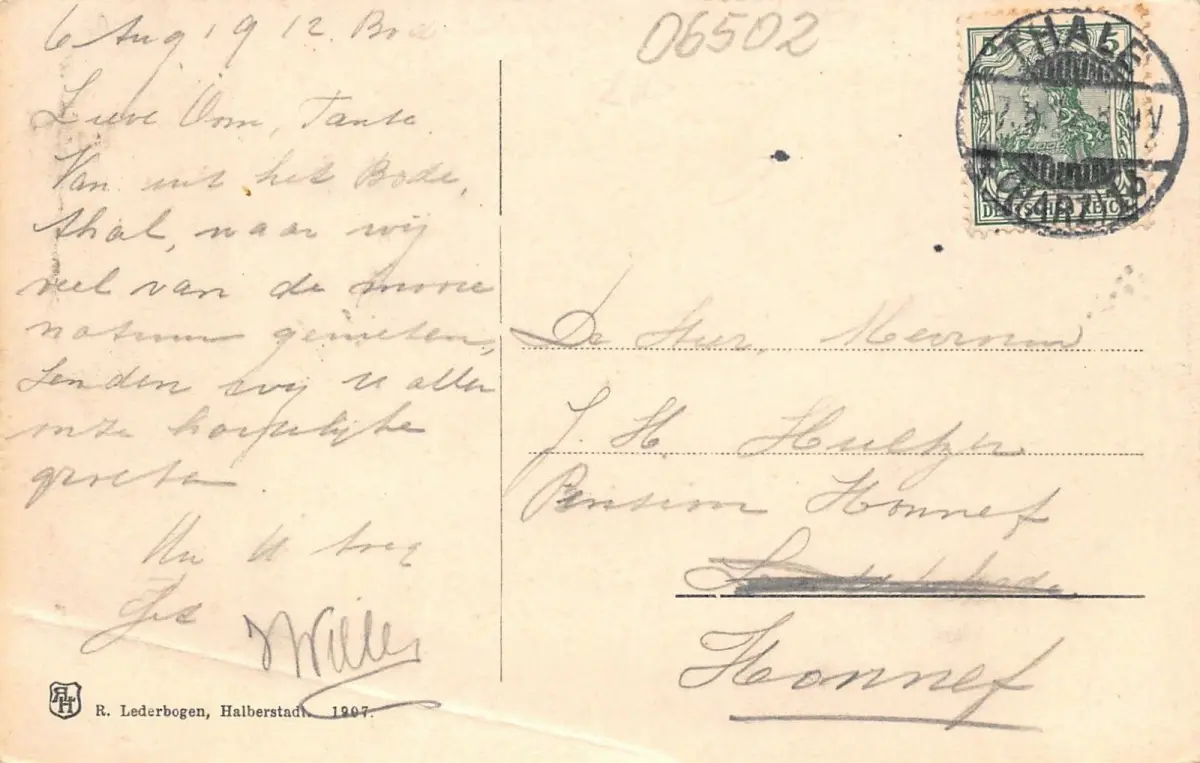 06502
6 Aug 1912.
Lieve Oom, Tante.
Van uit het Bode,
thal, waar wij
veel van de mooie
natuur genieten,
Senden wij u allen
onze hartelijke
groeten
Jet
Willem
THALE
(HARZ)
5 5
DEUTSCHES REICH
De Heer, Mevrouw
J. H.
Pension Honnef
Honnef
R. Lederbogen, Halberstadt. 1907.